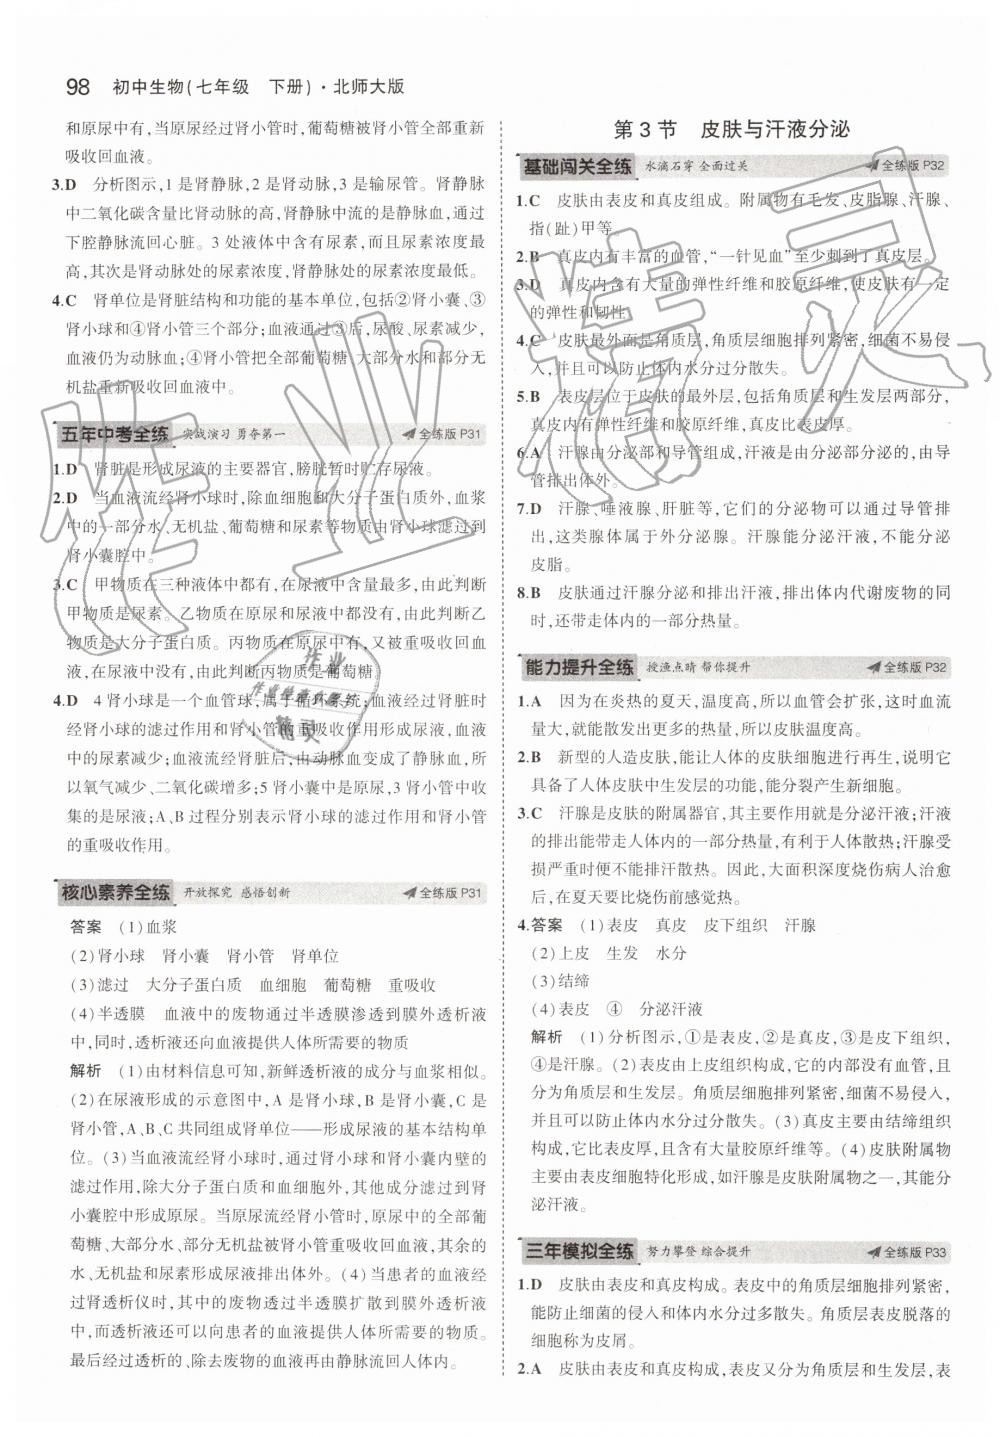 98 初中生物(七年级 下册)·北师大版
和原尿中有,当原尿经过肾小管时,葡萄糖被肾小管全部重新
吸收回血液。
3.D 分析图示,1是肾静脉,2是肾动脉,3是输尿管。肾静脉
中二氧化碳含量比肾动脉的高,肾静脉中流的是静脉血,通过
下腔静脉流回心脏。3处液体中含有尿素,而且尿素浓度最
高,其次是肾动脉处的尿素浓度,肾静脉处的尿素浓度最低。
4.C 肾单位是肾脏结构和功能的基本单位,包括②肾小囊、③
肾小球和④肾小管三个部分;血液通过③后,尿酸、尿素减少,
血液仍为动脉血;④肾小管把全部葡萄糖、大部分水和部分无
机盐重新吸收回血液中。
五年中考全练 实战演习 勇夺第一 全练版 P31
1.D 肾脏是形成尿液的主要器官,膀胱暂时贮存尿液。
2.D 当血液流经肾小球时,除血细胞和大分子蛋白质外,血浆
中的一部分水、无机盐、葡萄糖和尿素等物质由肾小球滤过到
肾小囊腔中。
3.C 甲物质在三种液体中都有,在尿液中含量最多,由此判断
甲物质是尿素。乙物质在原尿和尿液中都没有,由此判断乙
物质是大分子蛋白质。丙物质在原尿中有,又被重吸收回血
液,在尿液中没有,由此判断丙物质是葡萄糖。
4.D 4肾小球是一个血管球,属于循环系统;血液流经肾脏时
经肾小球的滤过作用和肾小管的重吸收作用形成尿液,尿液
中的尿素减少;血液流经肾脏后,由动脉血变成了静脉血,所
以氧气减少、二氧化碳增多;5肾小囊中是原尿,3肾小管中收
集的是尿液;A、B过程分别表示肾小球的滤过作用和肾小管
的重吸收作用。
核心素养全练 开放探究 感悟创新 全练版 P31
答案 (1)血浆
(2)肾小球 肾小囊 肾小管 肾单位
(3)滤过 大分子蛋白质 血细胞 葡萄糖 重吸收
(4)半透膜 血液中的废物通过半透膜渗透到膜外透析液
中,同时,透析液还向血液提供人体所需要的物质
解析 (1)由材料信息可知,新鲜透析液的成分与血浆相似。
(2)在尿液形成的示意图中,A是肾小球,B是肾小囊,C是
肾小管,A、B、C共同组成肾单位——形成尿液的基本结构单
位。(3)当血液流经肾小球时,通过肾小球和肾小囊内壁的
滤过作用,除大分子蛋白质和血细胞外,其他成分滤过到肾
小囊腔中形成原尿。当原尿流经肾小管时,原尿中的全部葡
萄糖、大部分水、部分无机盐等被肾小管重吸收回血液,其余的
水、无机盐和尿素形成尿液排出体外。(4)当患者的血液流经
过肾透析仪时,其中的废物透过半透膜扩散到膜外透析液中,
透析液还可以向患者的血液里提供人体所需要的物质。
最后经过透析的、除去废物的血液再由静脉流回人体内。
第3节 皮肤与汗液分泌
基础闯关全练 水滴石穿 全面过关 全练版 P32
1.C 皮肤由表皮和真皮组成。附属物有毛发、皮脂腺、汗腺、
指(趾)甲等。
2.B 真皮内有丰富的血管,“一针见血”至少刺到了真皮层。
3.D 真皮内含有大量的弹性纤维和胶原纤维,使皮肤有一定
的弹性和韧性。
4.C 皮肤最外面是角质层,角质层细胞排列紧密,细菌不易侵
入,并且可以防止体内水分过分散失。
5.B 表皮层位于皮肤的最外层,包括角质层和生发层两部分,
真皮内有血管、弹性纤维和胶原纤维,真皮比表皮厚。
6.A 汗腺由分泌部和导管组成,汗液是由分泌部分泌的,由导
管排出体外。
7.D 汗腺、唾液腺、肝脏等,它们的分泌物可以通过导管排
出,这类腺体属于外分泌腺。汗腺能分泌汗液,不能分泌
皮脂。
8.B 皮肤通过汗腺分泌和排出汗液,排出体内代谢废物的同
时,还带走体内的一部分热量。
能力提升全练 授渔点睛 帮你提升 全练版 P32
1.A 因为在炎热的夏天,温度高,所以血管会扩张,这时血流
量大,就能散发出更多的热量,所以皮肤温度高。
2.B 新型的人造皮肤,能让人体的皮肤细胞进行再生,说明它
具备了人体皮肤中生发层的功能,能分裂产生新细胞。
3.C 汗腺是皮肤的附属器官,其主要作用就是分泌汗液;汗液
的排出能带走人体内的一部分热量,有利于人体散热;汗腺受
损严重时不利于排汗散热。因此,大面积深度烧伤病人治愈
后,在夏天要比烧伤前感觉热。
4.答案 (1)表皮 真皮 皮下组织 汗腺
(2)上皮 生发 水分
(3)结缔
(4)表皮 ④ 分泌汗液
解析 (1)分析图示,①是表皮,②是真皮,③是皮下组织,
④是汗腺。(2)表皮由上皮组织构成,它的内部没有血管,且
分为角质层和生发层。角质层细胞排列紧密,细菌不易侵入,
并且可以防止体内水分过分散失。(3)真皮主要由结缔组织
构成,它比表皮厚,且含有大量胶原纤维等。(4)皮肤附属物
主要由表皮细胞特化形成,如汗腺是皮肤附属物之一,其能分
泌汗液。
三年模拟全练 努力攀登 综合提升 全练版 P33
1.D 皮肤由表皮和真皮构成。表皮中的角质层细胞排列紧密,
能防止细菌的侵入和体内水分过多散失。角质层表皮脱落的
细胞称为皮屑。
2.A 皮肤由表皮和真皮构成,表皮又分为角质层和生发层,表